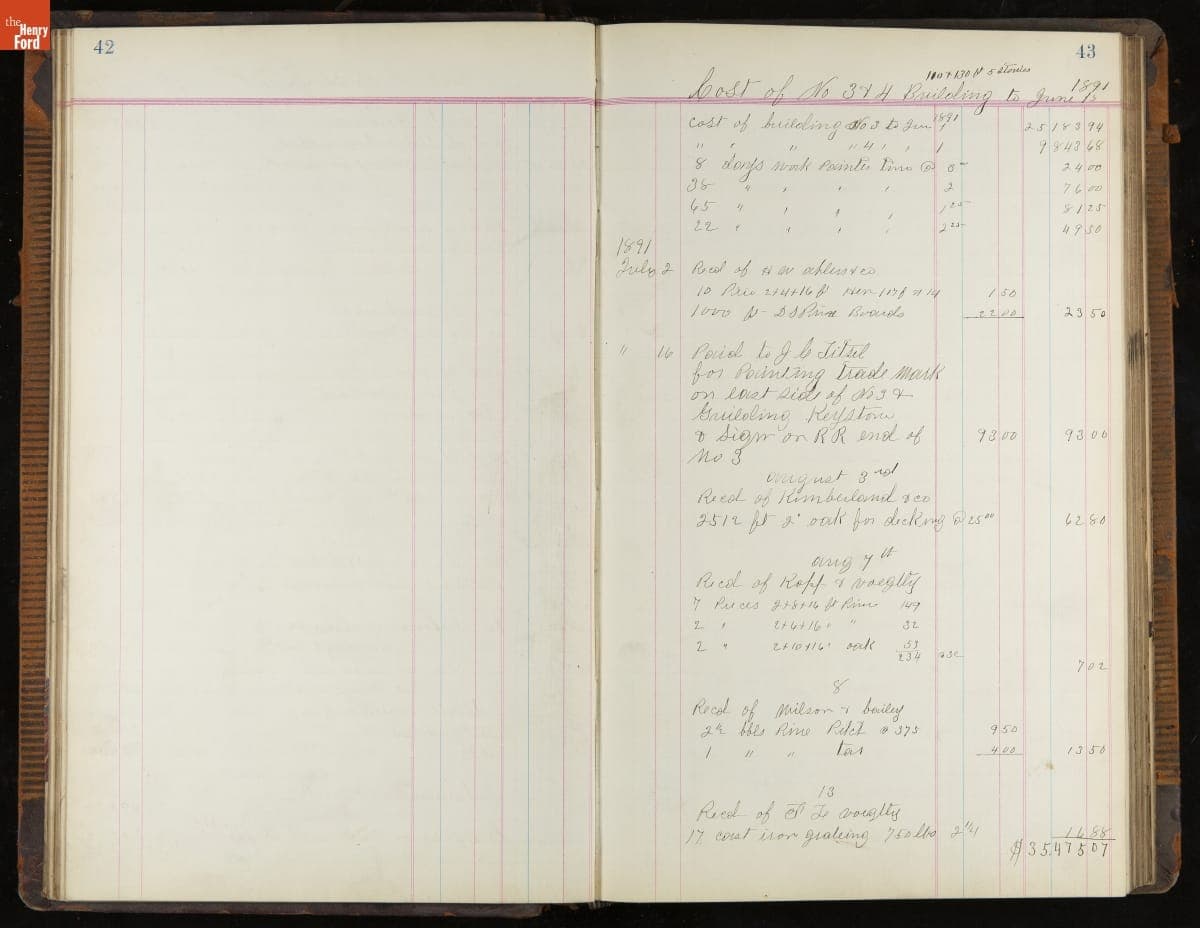 the
Henry
Ford
42
43
110 + 130 ft 5 stories
Cost of No 3 & 4 Building to June 1st 1891
Cost of building No 3 to Jun 1 1891 25183 94
" " " " 4 " " 1 9843 68
8 days work Painter time @ 24 00
38 " " " " 2 76 00
65 " " " " 1 25 81 25
22 " " " " 2 25 49 50
1891
July 2 Recd of & co
10 2+4+16 ft 1 50
1000 ft Boards 22 00 23 50
" 16 Paid to J C Titzel
for Painting trade mark
on east side of No 3 &
Guilding Keystone
& Sign on RR end of 93 00 93 00
No 3
august 3rd
Recd of Kimberland & co
2512 ft 2" oak for decking @ 25 00 62 80
aug 7th
Recd of Kopp & voegtly
7 Pieces 2+8+16 ft Pine 149
2 " 2+6+16 " " 32
2 " 2+10+16 " oak 53
234 7 02
8
Recd of Wilson & bailey
bbls Pine Pitch @ 375 9 50
1 " " tar 4 00 13 50
13
Recd of voegtly
17 cast iron grateing 750 lbs 2 1/4 16 88
$ 35475 07